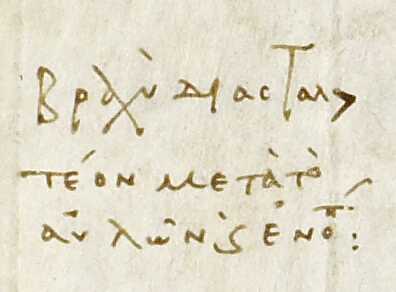 βραχὺ διασταλ
τέον μετὰ τὸ
αὐλῶν ϗ ἐνοπ: